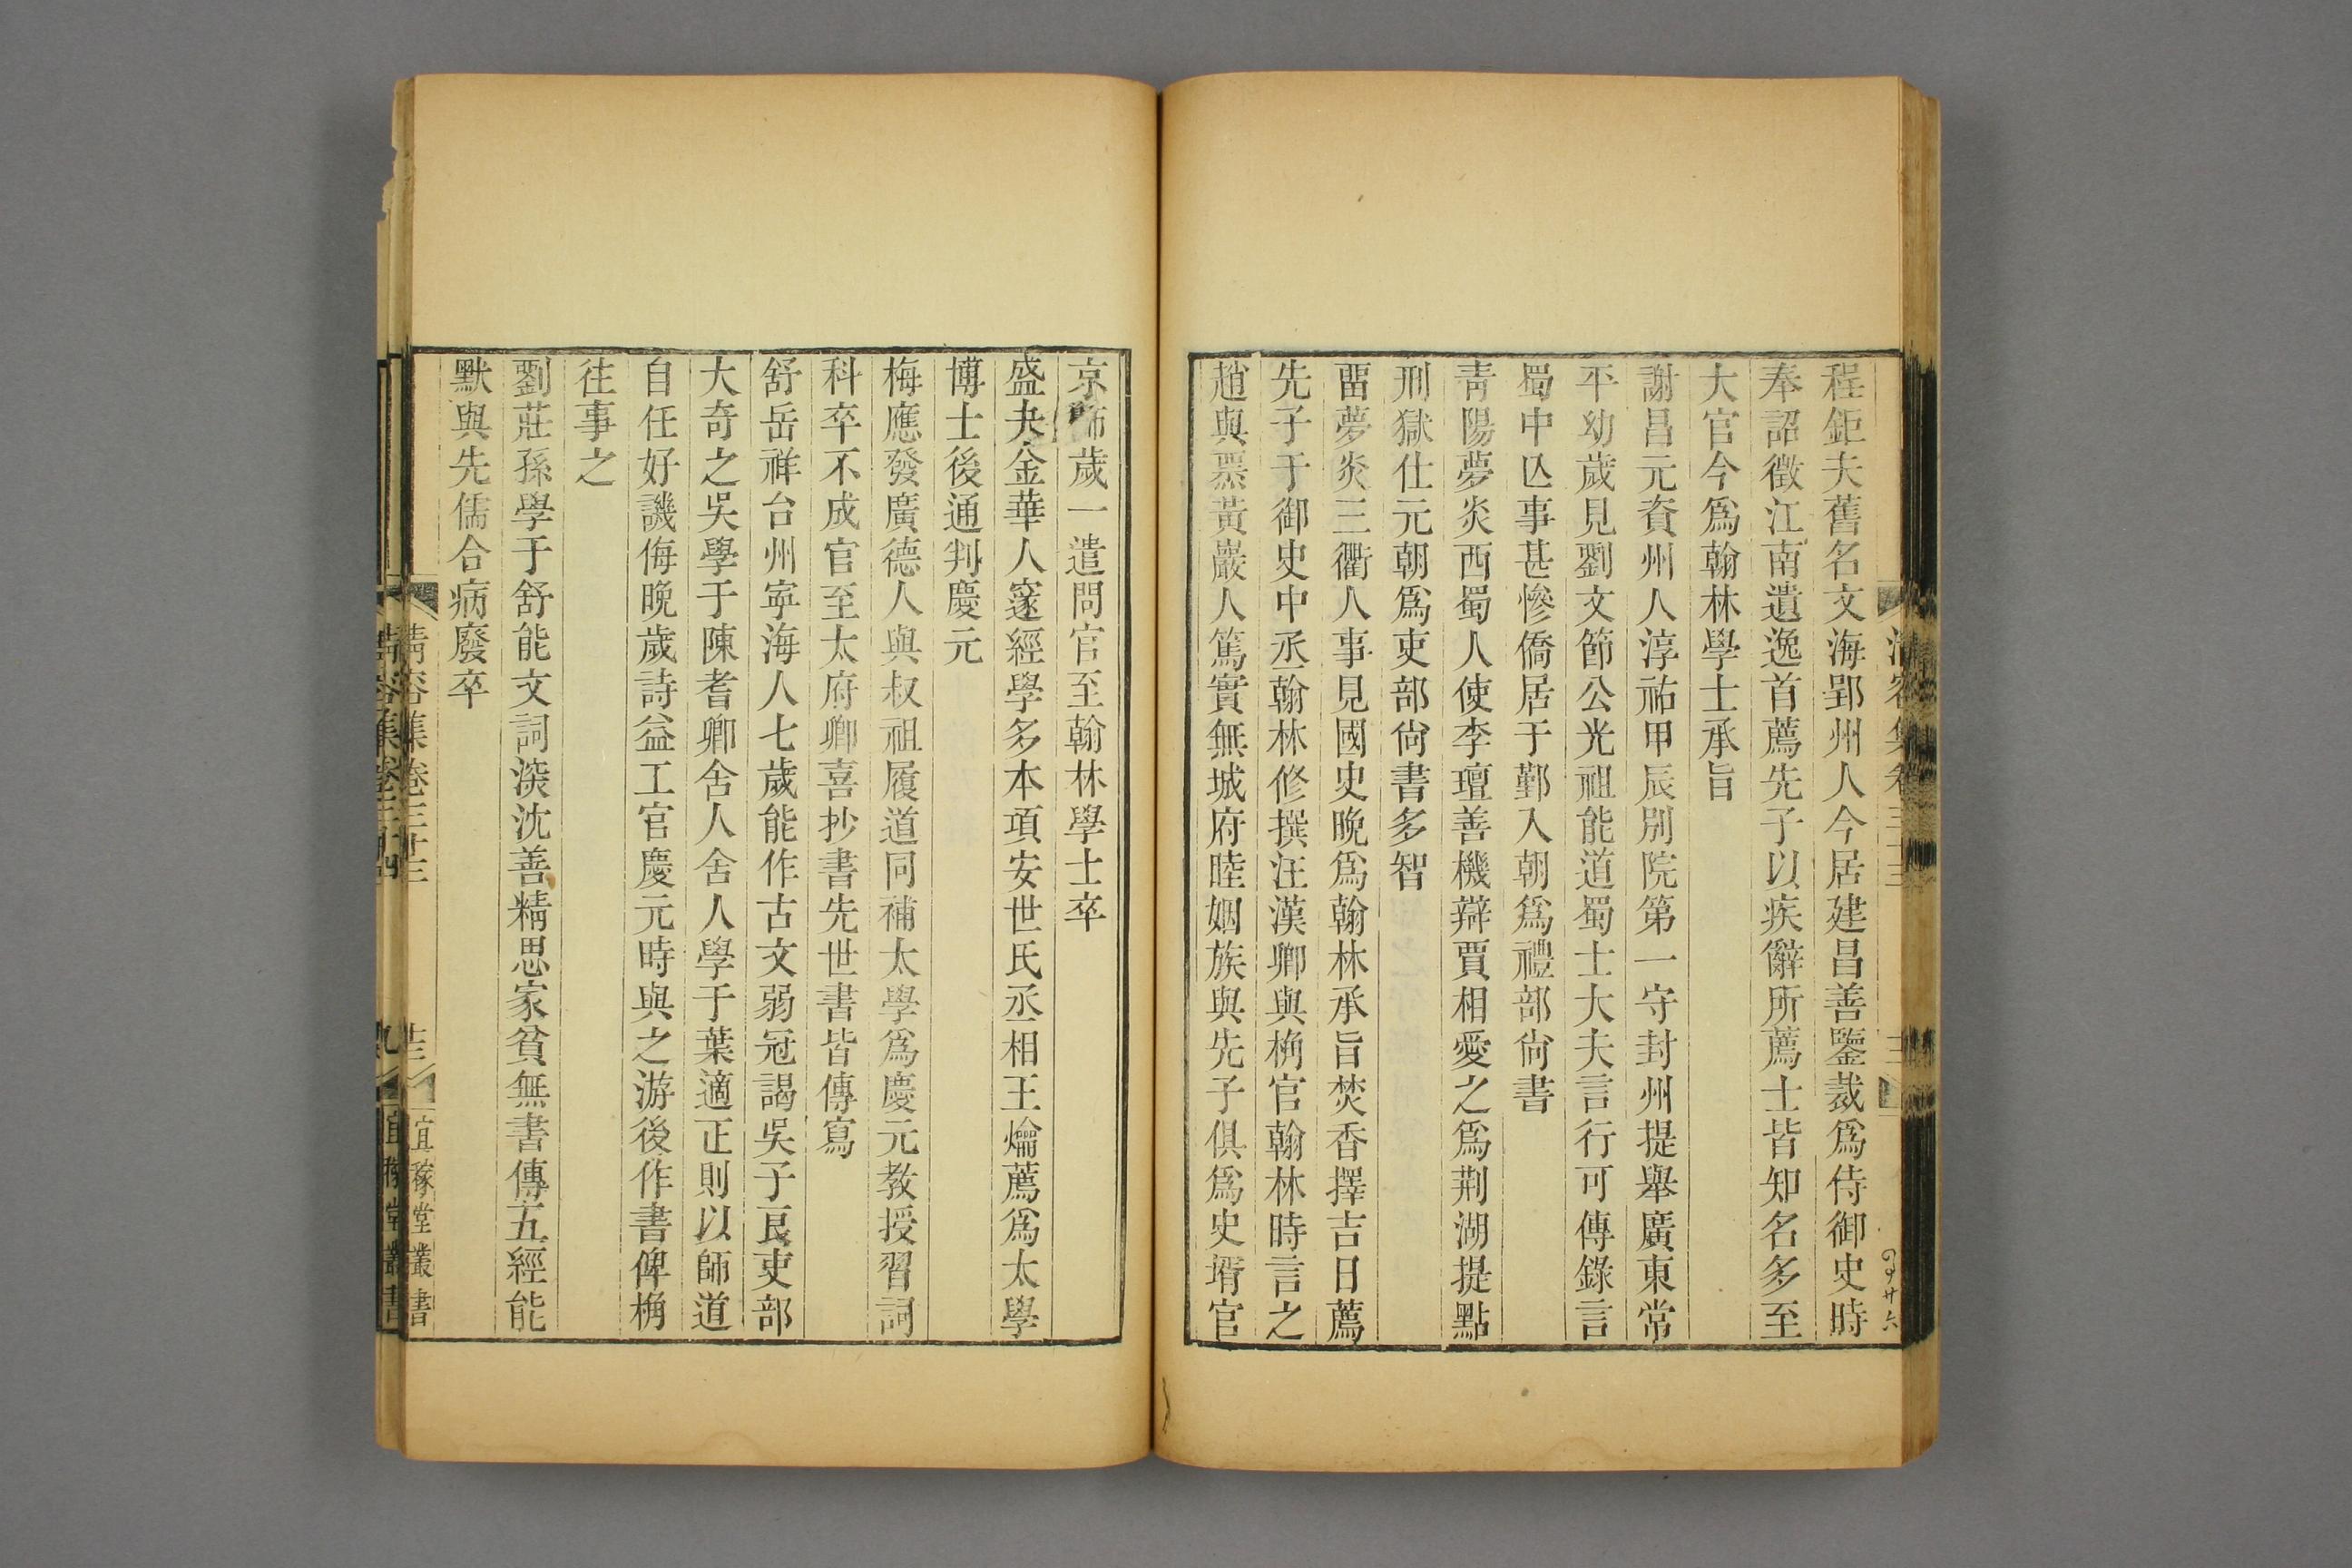 程鉅夫舊名文海郢州人今居建昌善鑒裁爲侍御史時
奉詔徵江南遺逸首薦先子以疾辭所薦士皆知名多至
大官今爲翰林學士承旨
謝昌元資州人淳祐甲辰別院第一守封州提舉廣東常
平幼歲見劉文節公光祖能道蜀士大夫言行可傳錄言
蜀中亾事甚慘僑居于鄞入朝爲禮部尙書
靑陽夢炎西蜀人使李璮善機辯賈相愛之爲荆湖提點
刑獄仕元朝爲吏部尙書多智
畱夢炎三衢人事見國史晚爲翰林承旨焚香擇吉日薦
先子于御史中丞翰林修撰汪漢卿與桷官翰林時言之
趙與𤋮黃巖人篤實無城府睦姻族與先子俱爲史壻官
京師歲一遣問官至翰林學士卒
盛夬金華人邃經學多本項安世氏丞相王爚薦爲太學
博士後通判慶元
梅應發廣德人與叔祖履道同補太學爲慶元教授習詞
科卒不成官至太府卿喜抄書先世書皆傳寫
舒岳祥台州寧海人七歲能作古文弱冠謁吳子良吏部
大奇之吳學于陳耆卿舍人舍人學于葉適正則以師道
自任好譏侮晚歲詩益工官慶元時與之游後作書俾桷
往事之
劉莊孫學于舒能文詞深沈善精思家貧無書傳五經能
默與先儒合病廢卒
清容集卷三十三
十三
宜稼堂叢書
清容集卷三十四
九
宜稼堂叢書